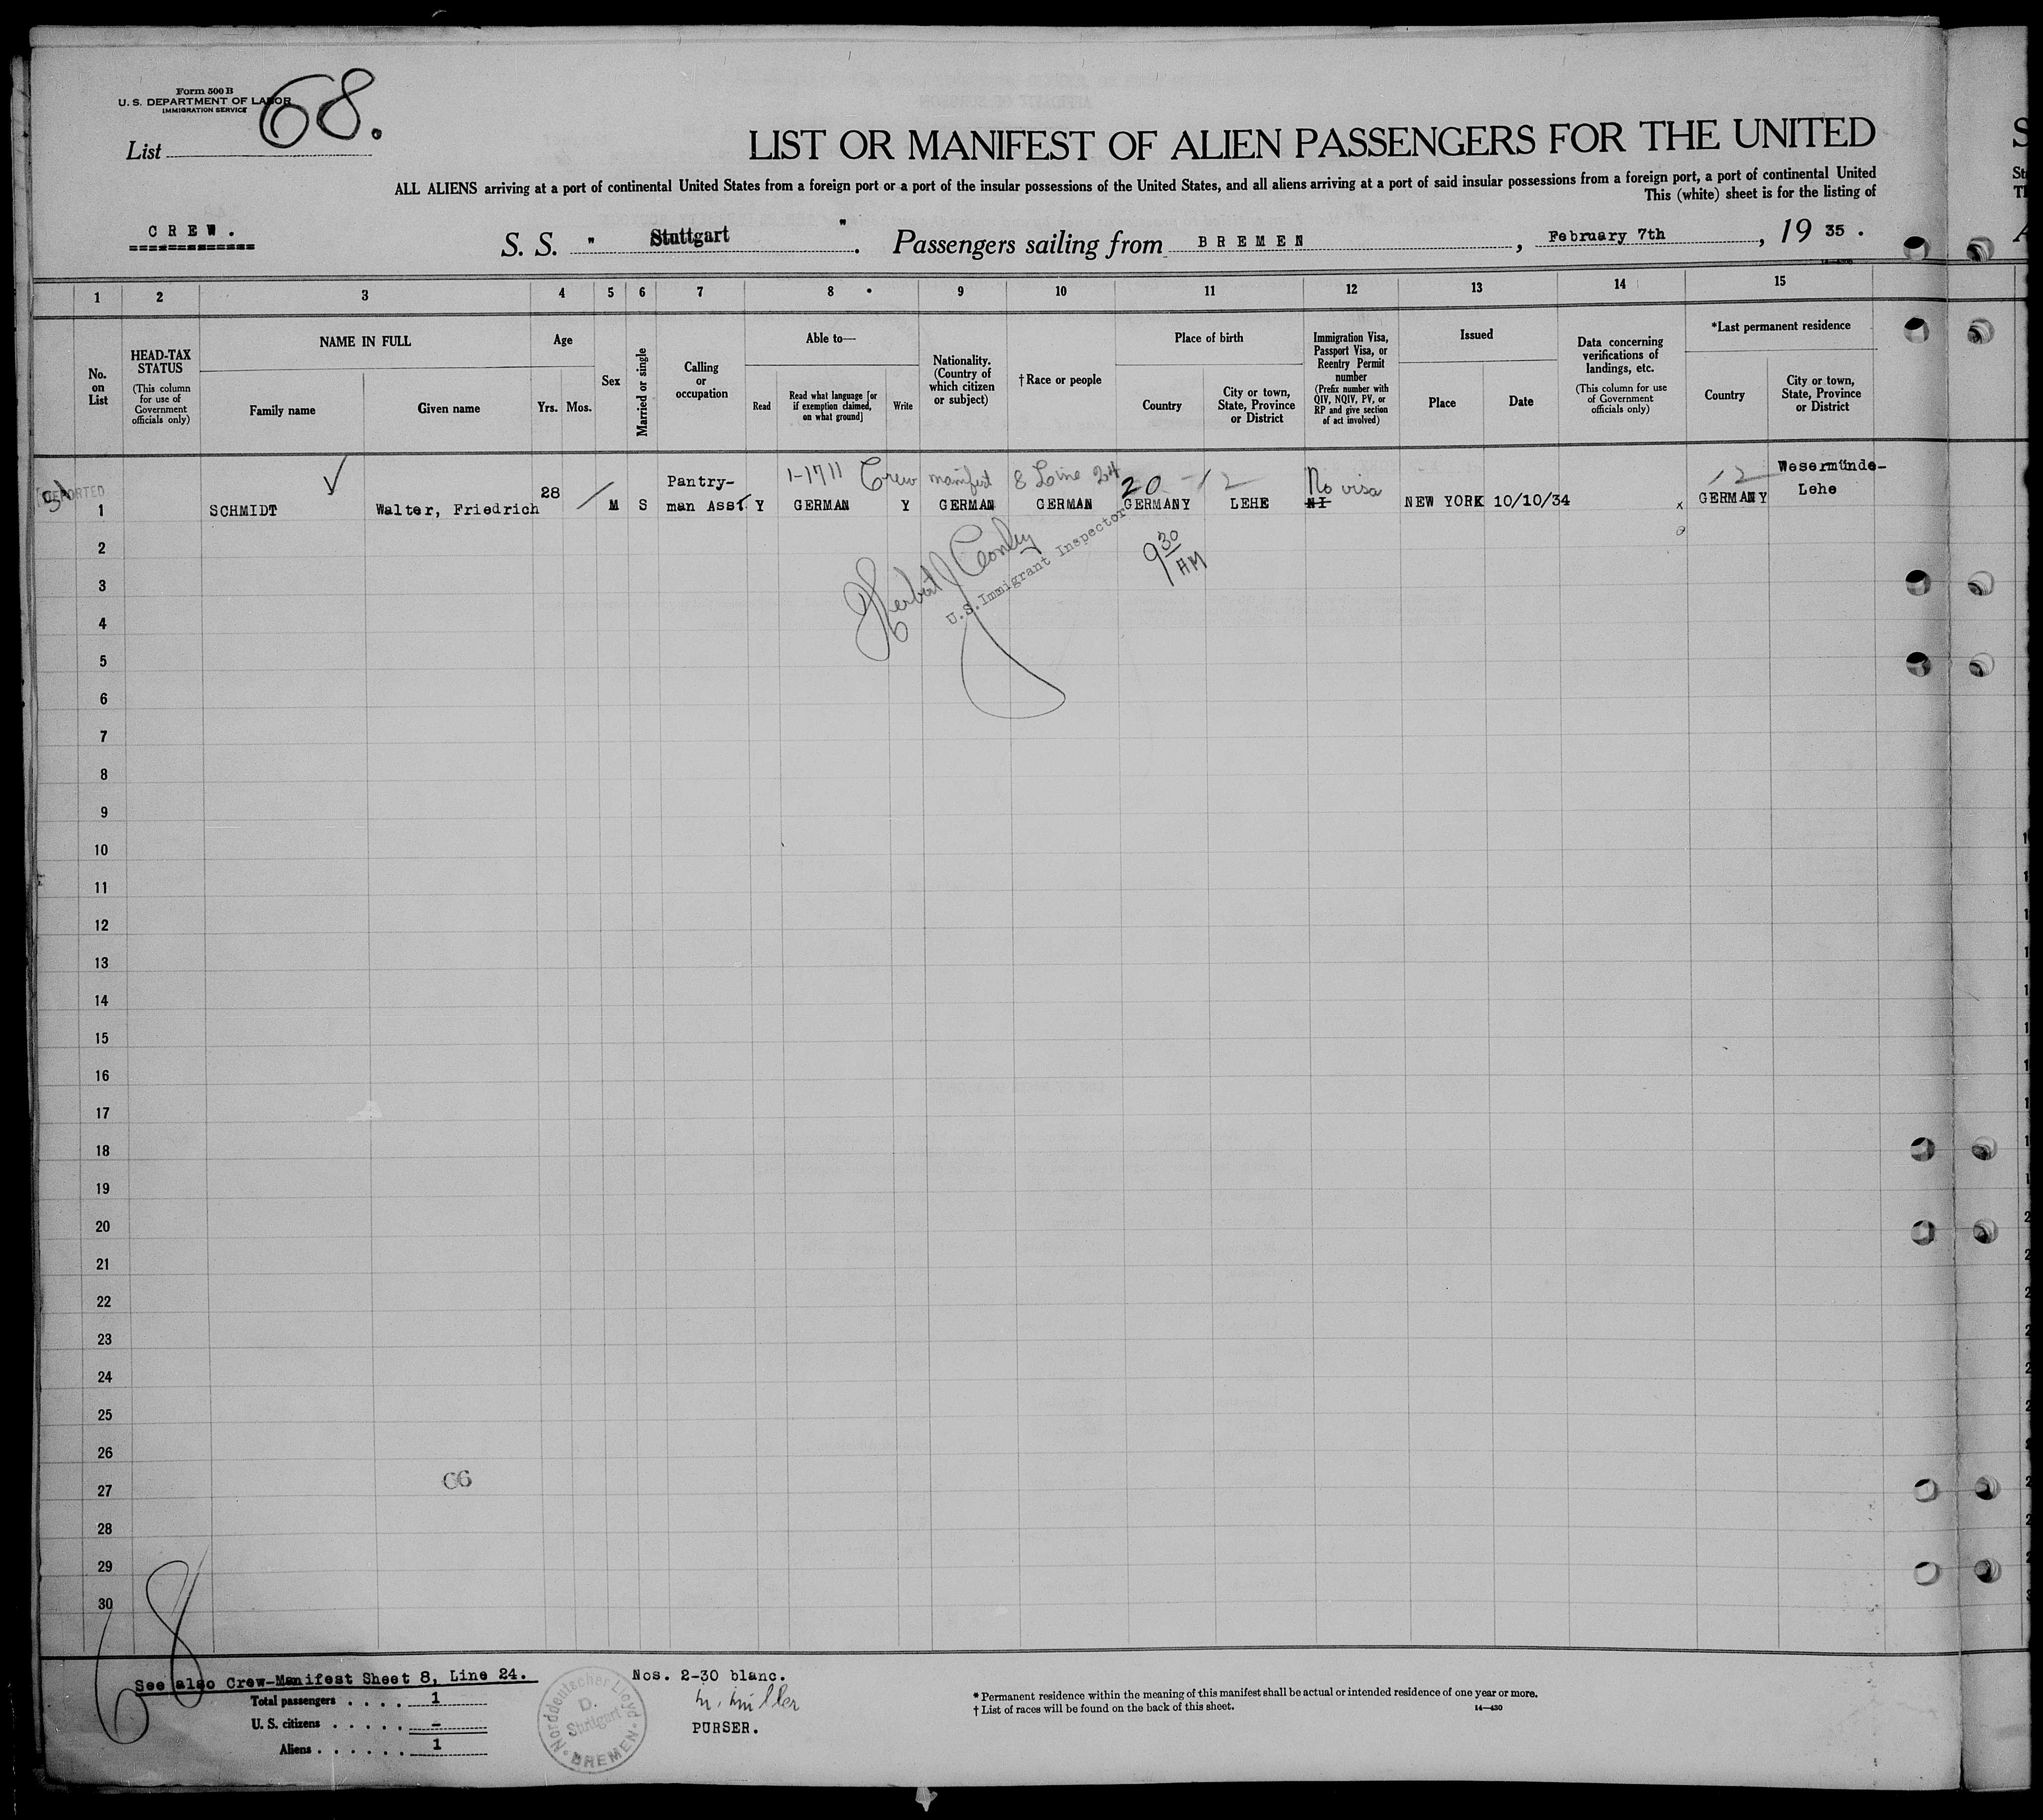 Form 500 B
U. S. DEPARTMENT OF LABOR
IMMIGRATION SERVICE
List 68.
LIST OR MANIFEST OF ALIEN PASSENGERS FOR THE UNITED
ALL ALIENS arriving at a port of continental United States from a foreign port or a port of the insular possessions of the United States, and all aliens arriving at a port of said insular possessions from a foreign port, a port of continental United
This (white) sheet is for the listing of
CREW.
S. S. " Stuttgart ". Passengers sailing from BREMEN, February 7th, 19 35.
1 2 3 4 5 6 7 8 9 10 11 12 13 14 15
No. on List
HEAD-TAX STATUS
(This column for use of Government officials only)
NAME IN FULL
Family name
Given name
Age
Yrs. Mos.
Sex
Married or single
Calling or occupation
Able to—
Read
Read what language [or if exemption claimed, on what ground]
Write
Nationality. (Country of which citizen or subject)
†Race or people
Place of birth
Country
City or town, State, Province or District
Immigration Visa, Passport Visa, or Reentry Permit number
(Prefix number with QIV, NQIV, PV, or RP and give section of act involved)
Issued
Place
Date
Data concerning verifications of landings, etc.
(This column for use of Government officials only)
*Last permanent residence
Country
City or town, State, Province or District
1-1711 Crew manifest 8 Line 24
20 - 12
No visa
12
1 SCHMIDT Walter, Friedrich 28 M S Pantry-man Asst Y GERMAN Y GERMAN GERMAN GERMANY LEHE NI NEW YORK 10/10/34 x GERMANY Wesermünde-Lehe
U.S. Immigrant Inspector
9 30 AM
2
3
4
5
6
7
8
9
10
11
12
13
14
15
16
17
18
19
20
21
22
23
24
25
26
27
28
29
30
68
See also Crew-Manifest Sheet 8, Line 24.
Total passengers . . . . 1
U. S. citizens . . . . . –
Aliens . . . . . . 1
Norddeutscher Lloyd
D. Stuttgart
BREMEN
Nos. 2-30 blanc.
PURSER.
* Permanent residence within the meaning of this manifest shall be actual or intended residence of one year or more.
† List of races will be found on the back of this sheet.
14—430